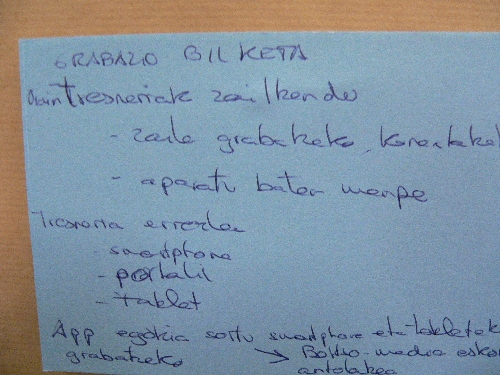 GRABAZIO BILKETA
Oain tresneriak zailkendu
- zaile grabatzeko, konektatzek
- aparatu baten menpe
Tresneria erreala
- smartphone
- portatil
- tablet
App egokia sortu smartphone eta tabletek
grabatzeko → Botho-media esko
antolakea